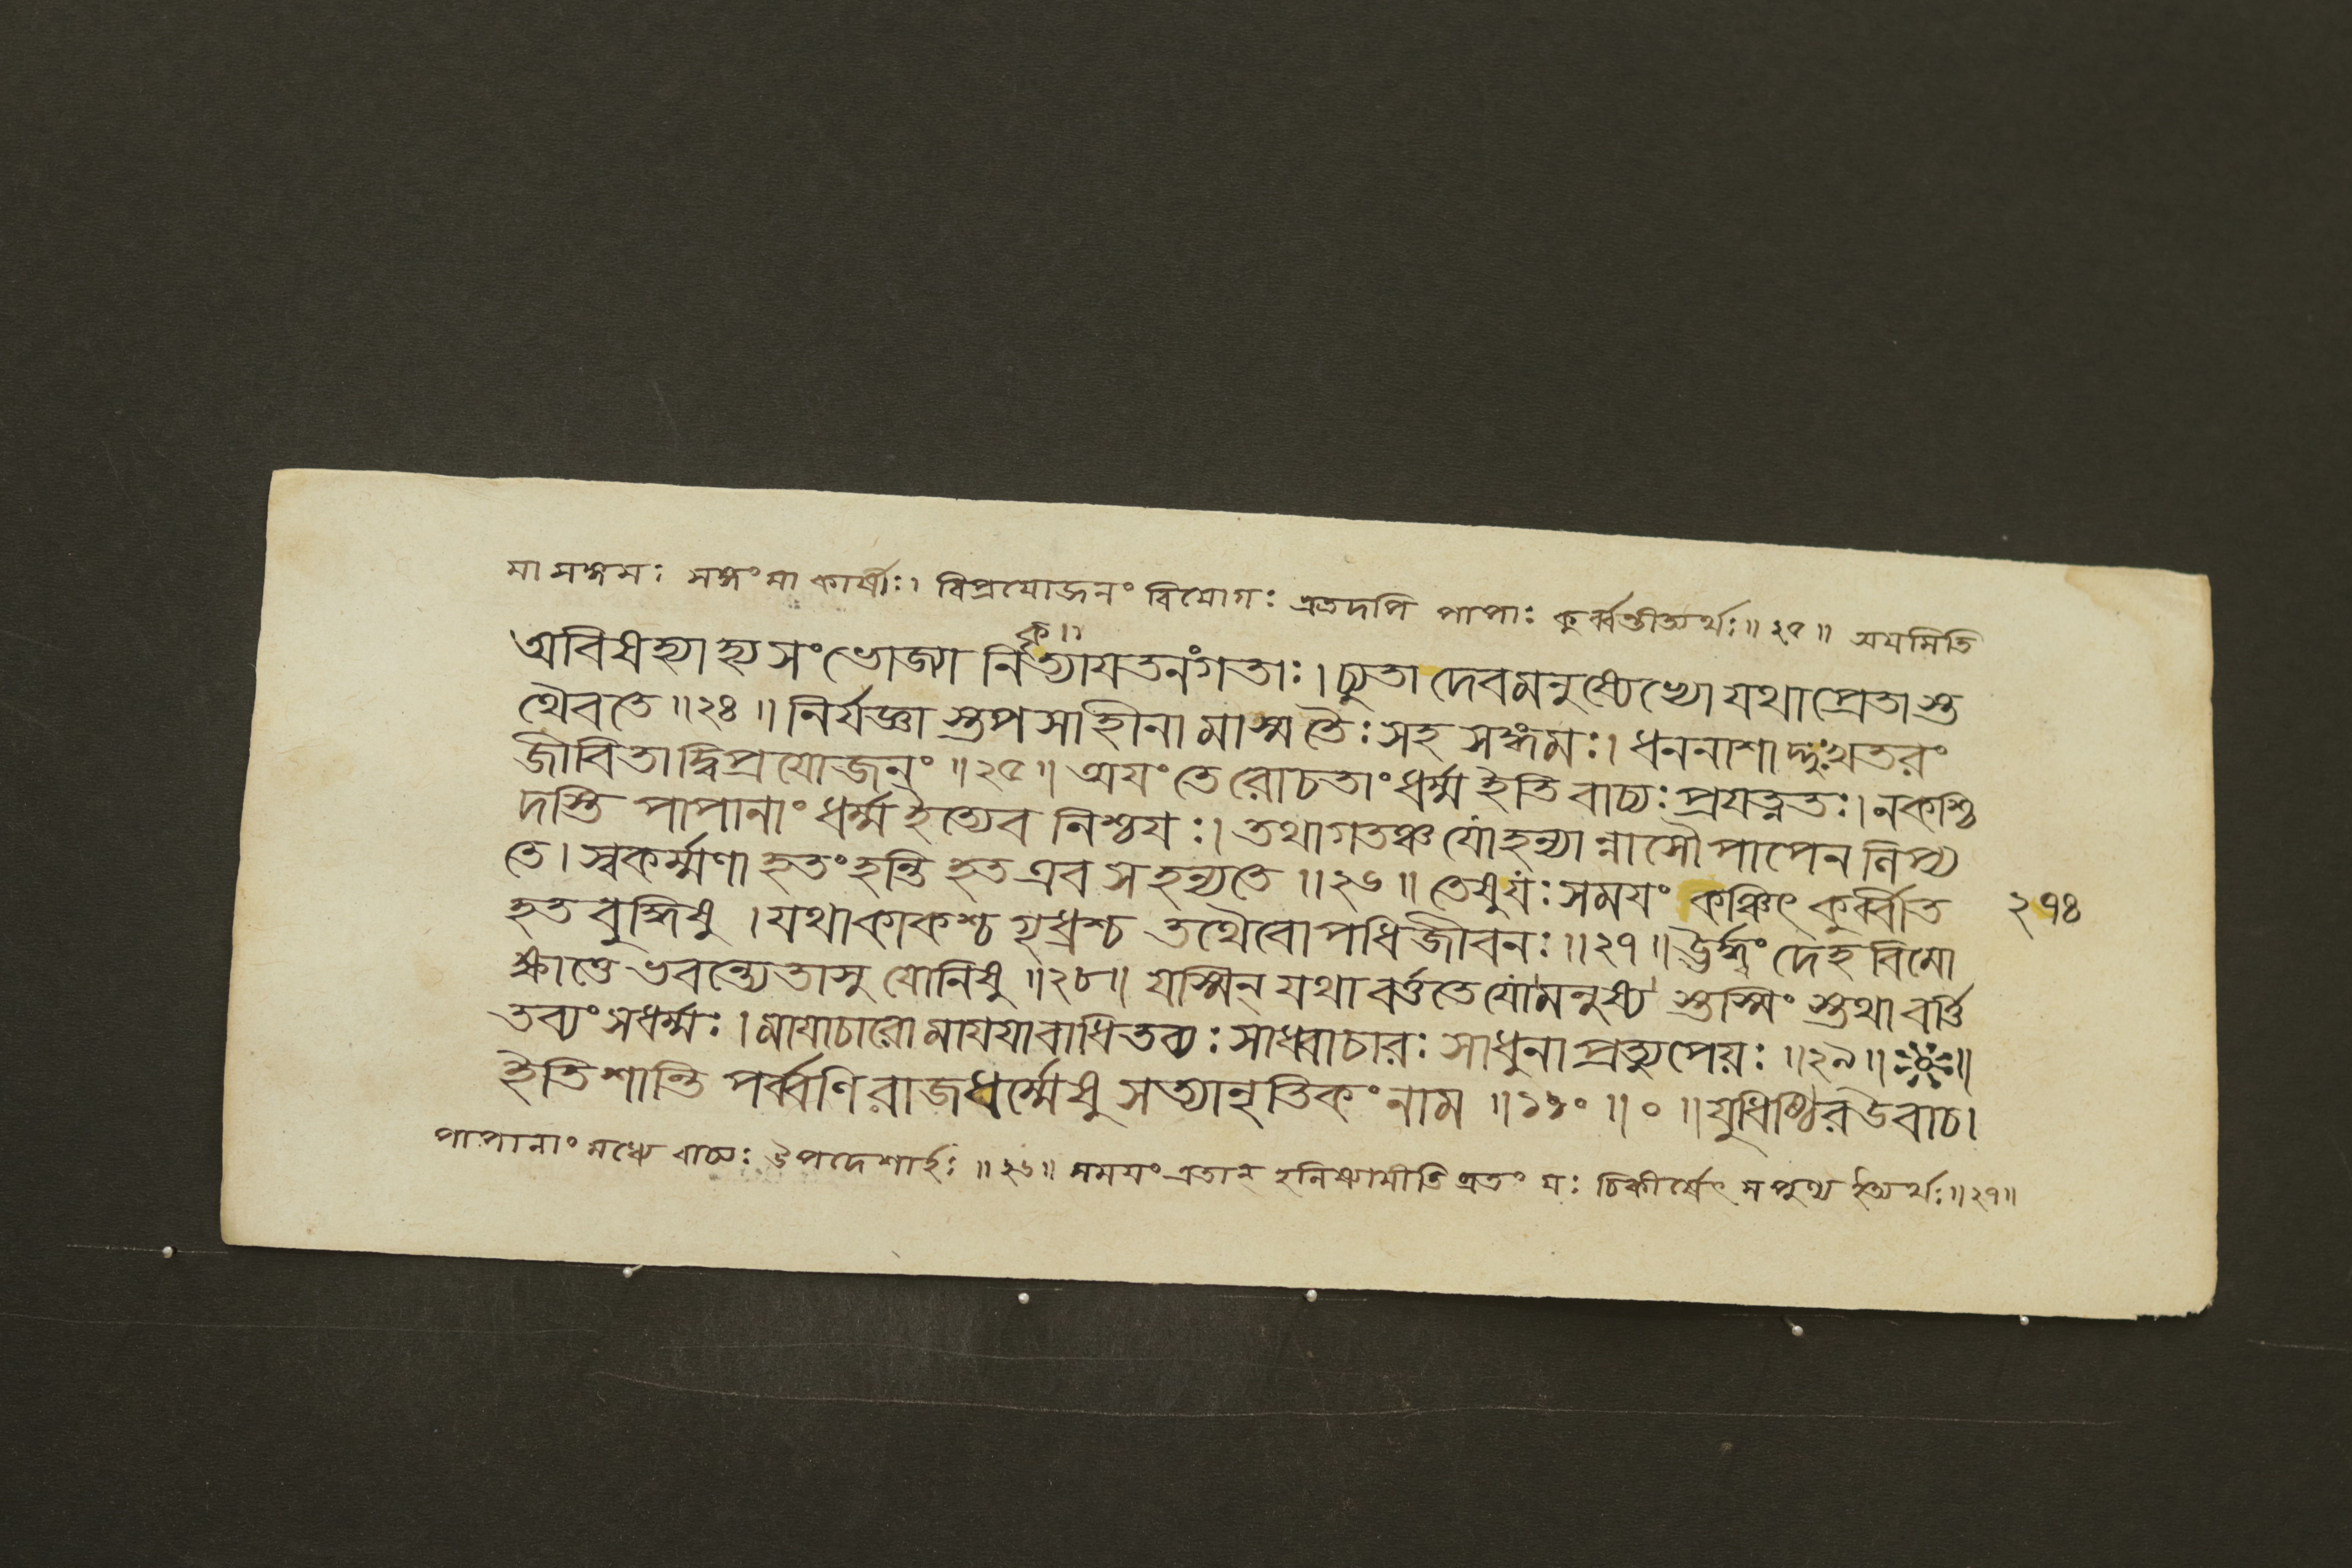 মা সঙ্গমঃ সঙ্গং মা কার্ষীঃ। বিপ্রযোজনং বিয়োগঃ এতদপি পাপাঃ কুর্ব্বন্তীত্যর্থঃ॥২৫॥ অযমিতি
অবিষহ্যাহ্যসংভোজ্যা নির্কৃত্যাযতনংগতাঃ। চ্যুতা দেবমনুষ্যেভ্যো যথাপ্রেতাস্ত
থৈবতে॥২৪॥নির্যজ্ঞাস্তপসাহীনা মাস্মতৈঃসহ সঙ্গমঃ। ধননাশাদ্দুঃখতরং
জীবিতাদ্বিপ্রযোজনং॥২৫॥অযং তে রোচতাং ধর্ম্ম ইতি বাচ্যঃপ্রযত্নতঃ।নকশ্চি
দস্তি পাপানাং ধর্ম্ম ইত্যেব নিশ্চযঃ। তথাগতঞ্চ যোহন্যান্নাসৌপাপেন নিপ্য
তে। স্বকর্ম্মণা হতং হন্তি হত এব সহন্যতে॥২৬॥ তেষুযঃ সমযং কঞ্চিৎ কুর্ব্বীত
হতবুদ্ধিষু।যথাকাকশ্চ গৃধ্রশ্চ তথৈবোপধিজীবনঃ॥২৭॥ঊর্দ্ধ্বং দেহবিমো
ক্ষান্তে ভবন্ত্যেতাসু যোনিষু॥২৮॥যস্মিন্ যথা বর্ত্ততে যোমনুষ্য স্তস্মিং স্তথা বর্ত্তি
তব্যং সধর্ম্মঃ।মাযাচারো মাযযা বাধিতব্যঃ সাধ্বাচারঃ সাধুনা প্রত্যুপেয়ঃ॥২৯॥ ॥
ইতিশান্তি পর্ব্বণি রাজধর্ম্মেষু সত্যানৃতিকং নাম॥১১০॥০॥যুধিষ্ঠির উবাচ।
পাপানাং মধ্যে বাচ্যঃ উপদেশার্হঃ॥২৬॥ সময়ং এতান্ হনিষ্যামীতি ব্রতং যঃ চিকীর্ষেৎ সপুণ্য ইত্যর্থঃ॥২৭॥
২৭৪